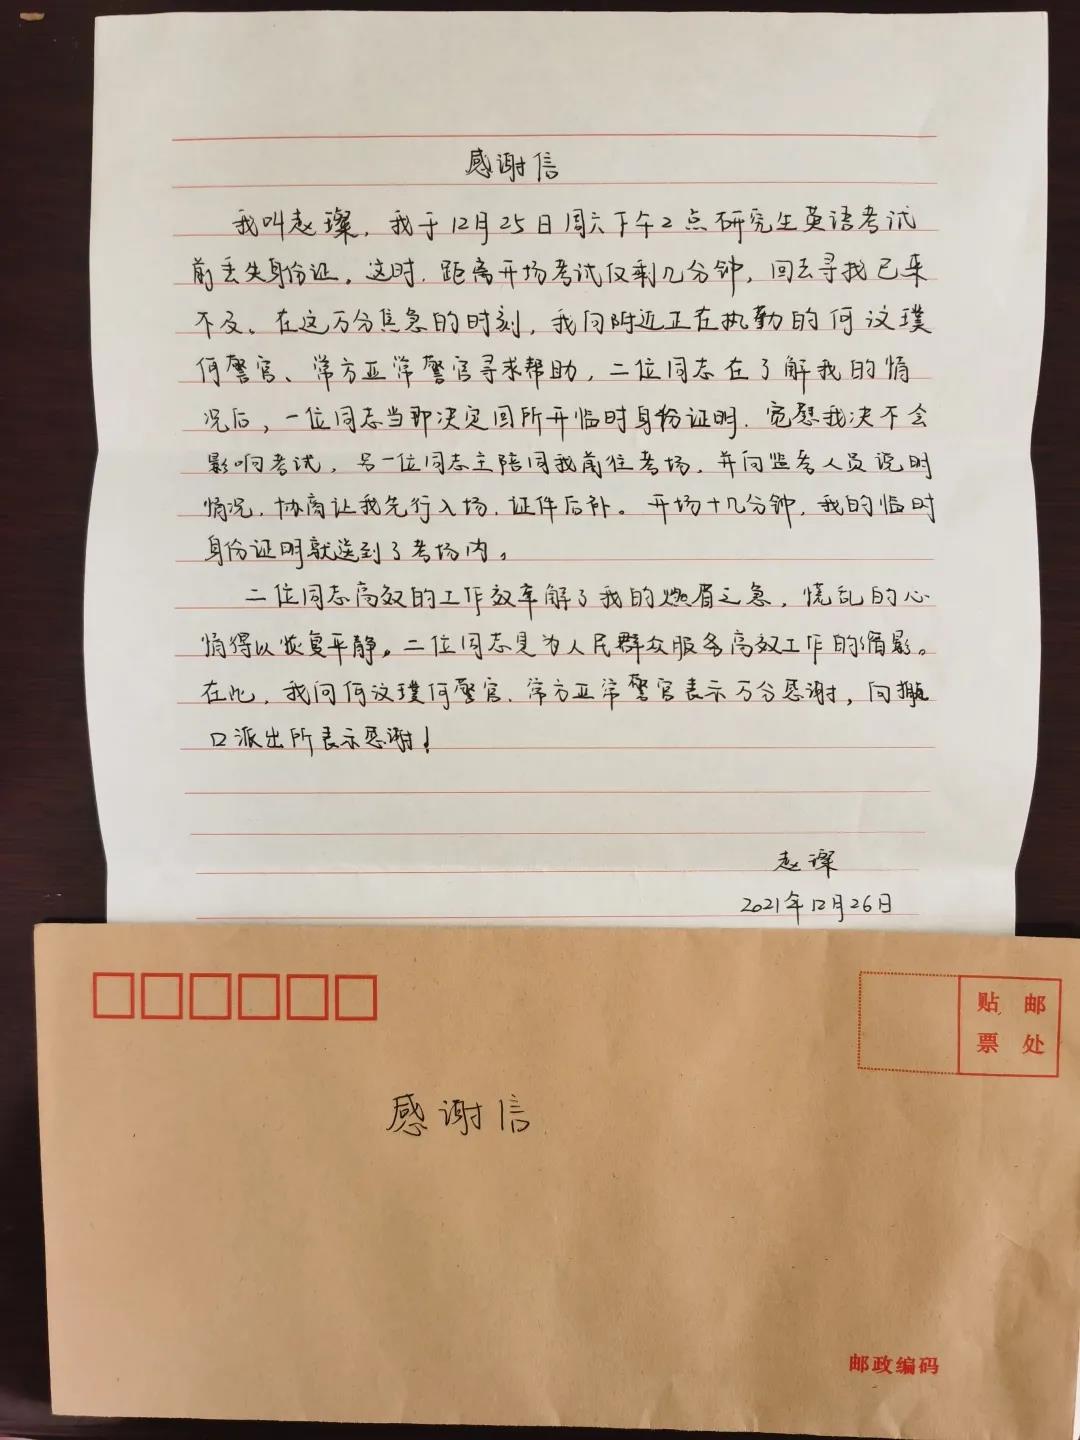 感谢信
我叫赵璨，我于12月25日周六下午2点研究生英语考试
前丢失身份证。这时，距离开场考试仅剩几分钟，回去寻找已来
不及。在这万分焦急的时刻，我向附近正在执勤的何汶璞
何警官、常方正常警官寻求帮助，二位同志在了解我的情
况后，一位同志当即决定回所开临时身份证明，宽慰我决不会
影响考试，另一位同志主陪同我前往考场，并向监考人员说明
情况，协商让我先行入场，证件后补。开场十几分钟，我的临时
身份证明就送到了考场内。
二位同志高效的工作效率解了我的燃眉之急，慌乱的心
情得以恢复平静。二位同志是为人民群众服务高效工作的缩影。
在此，我向何汶璞何警官、常方正常警官表示万分感谢，向
口派出所表示感谢！
赵璨
2021年12月26日
贴 邮
票 处
感谢信
邮政编码